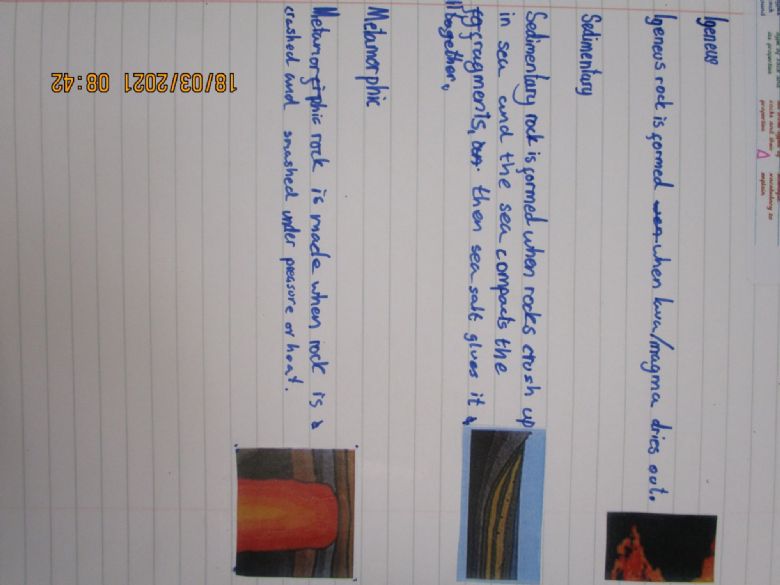 Igeneus
Igeneus rock is formed when lava/magma dries out.
Sedimentary
Sedimentary rock is formed when rocks crush up
in sea and the sea compacts the
fragments, then sea salt glues it
together.
Metamorphic
Metamorphic rock is made when rock is
crashed and smashed under preasure or heat.
18/03/2021 08:42